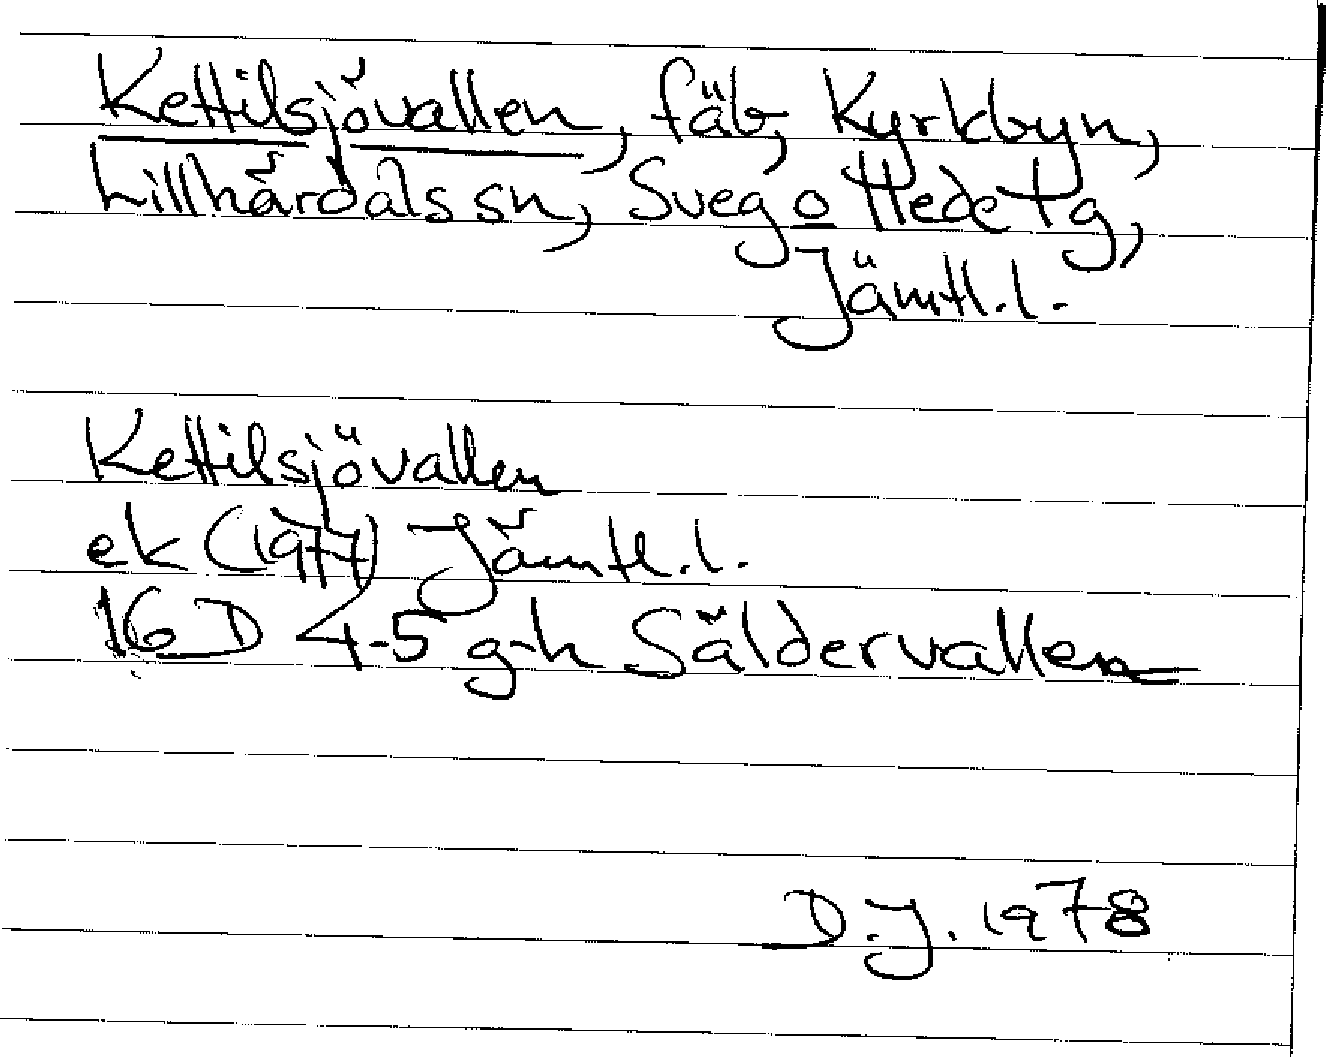 Kettilsjövallen, fäb, Kyrkbyn,
Lillhärdals sn, Sveg o Hede tg,
Jämtl. l.
Kettilsjövallen
ek (1977) Jämtl. l.
16 D 4-5 g-h Säldervallen
D.J. 1978